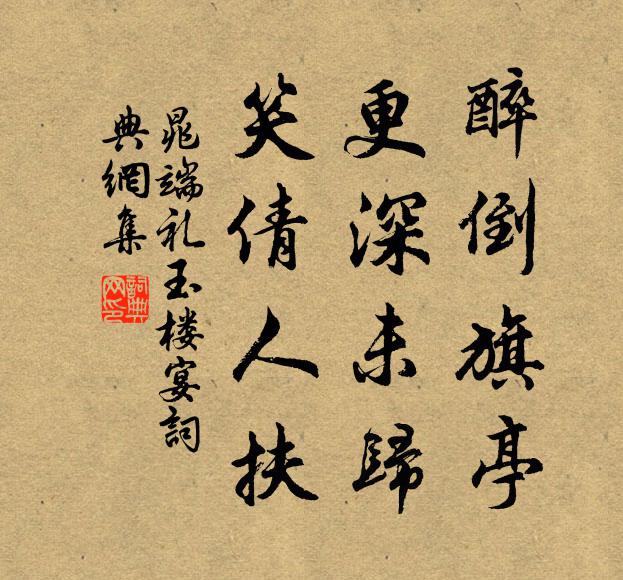 醉倒旗亭
更深未歸
笑倩人扶
晁端礼玉楼宴詞
典網集
詞典网印